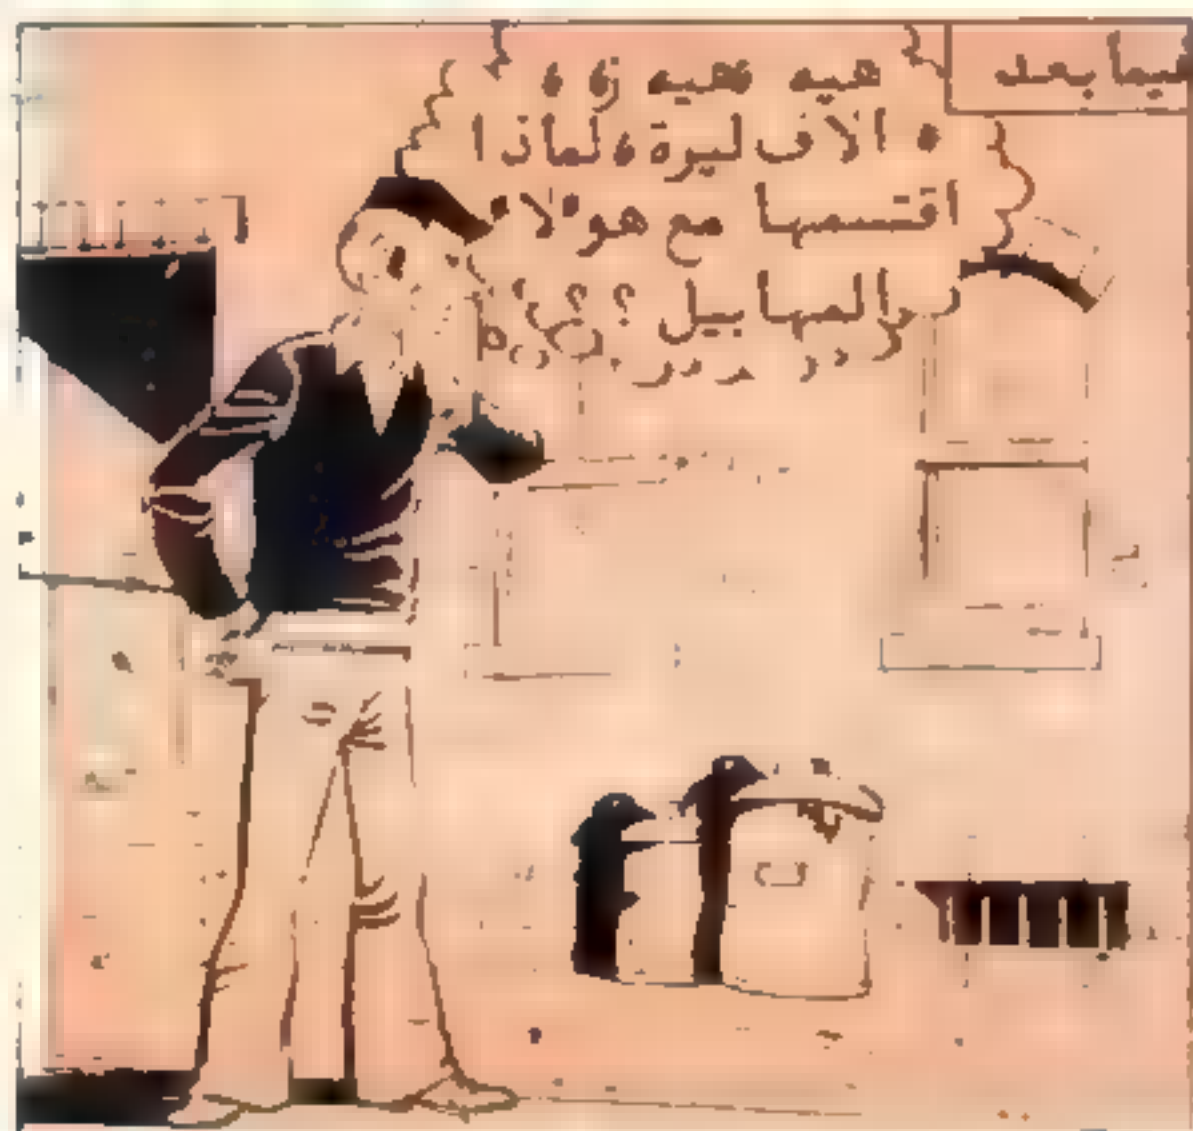 فيما بعد
هيه هيه زه ه
٥ الاف ليرة ، لماذا
اقتسمها مع هولاء
المهابيل ؟ ؟